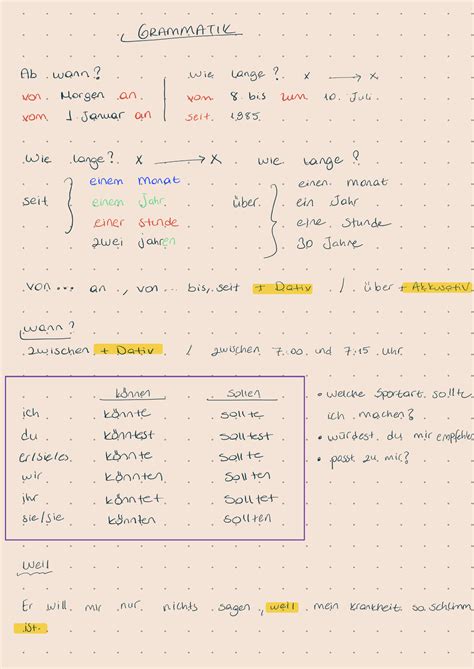 GRAMMATIK
Ab wann? wie lange? x → x
von Morgen an vom 8. bis zum 10. Juli.
vom 1. Januar an seit 1985.
Wie lange? x → x wie lange?
seit einem Monat über einen Monat
einem Jahr ein Jahr
einer Stunde eine Stunde
zwei Jahren 30 Jahre
von... an, von... bis, seit + Dativ / über + Akkusativ
Wann?
zwischen + Dativ / zwischen 7.00 und 7.15 uhr.
können sollen
ich könnte sollte
du könntest solltest
er/sie/es könnte sollte
wir könnten sollten
ihr könntet solltet
sie/sie könnten sollten
• welche Sportart sollte
ich machen?
• würdest du mir empfehlen
• passt zu mir?
Weil
Er will mir nur nichts sagen, weil mein Krankheit so schlimm
ist.